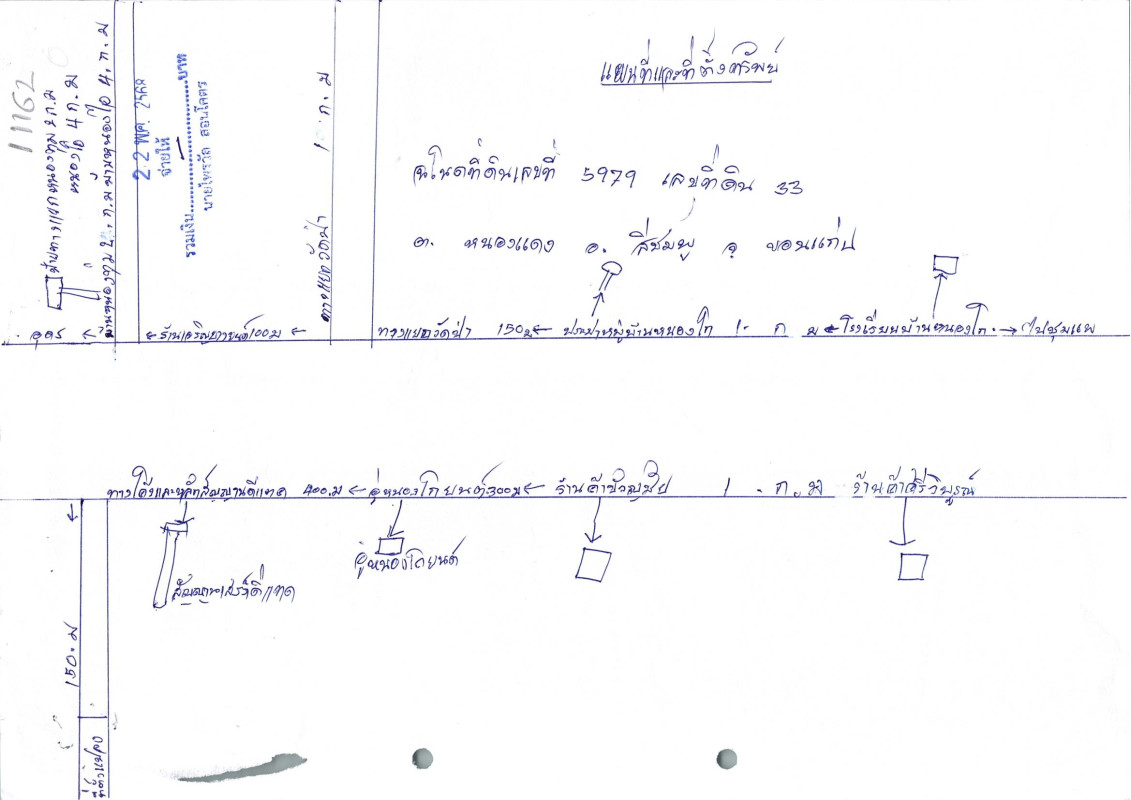 แผนที่และที่ตั้งทรัพย์
โฉนดที่ดินเลขที่ 5979 เลขที่ดิน 33
ต. หนองแดง อ. สีชมพู จ ขอนแก่น
11162
ป้ายทางแยกหนองทุ่ม 2 ก.ม
หนองโก 4 ก.ม
บ้านหนองทุ่ม 2. ก.ม บ้านหนองโก 4. ก.ม
22 พ.ค. 2568
จ่ายให้
รวมเงิน..........บาท
นายไพรวัล สอนโคตร
ทางแยกวัดป่า 1 ก.ม
อุดร
ร้านเจริญยานยนต์ 100 ม
ทางแยกวัดป่า 150 ม ประปาหมู่บ้านหนองโก 1. ก ม โรงเรียนบ้านหนองโก. ไปชุมแพ
ทางโค้งและหลักสัญญานดีแทค 400.ม อู่หนองโกยนต์ 300 ม ร้านค้าขวัญชัย 1. ก.ม ร้านค้าศรีวิบูรณ์
อู่หนองโกยนต์
สัญญานเสาดีแทค
150. ม
ที่ตั้งแปลง